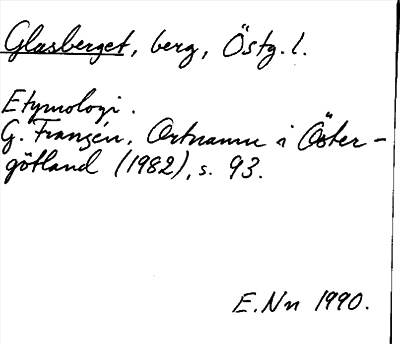 Glasberget, berg, Östg. l.
Etymologi.
G. Franzén, Ortnamn i Öster-
götland (1982), s. 93.
E. Nn 1990.